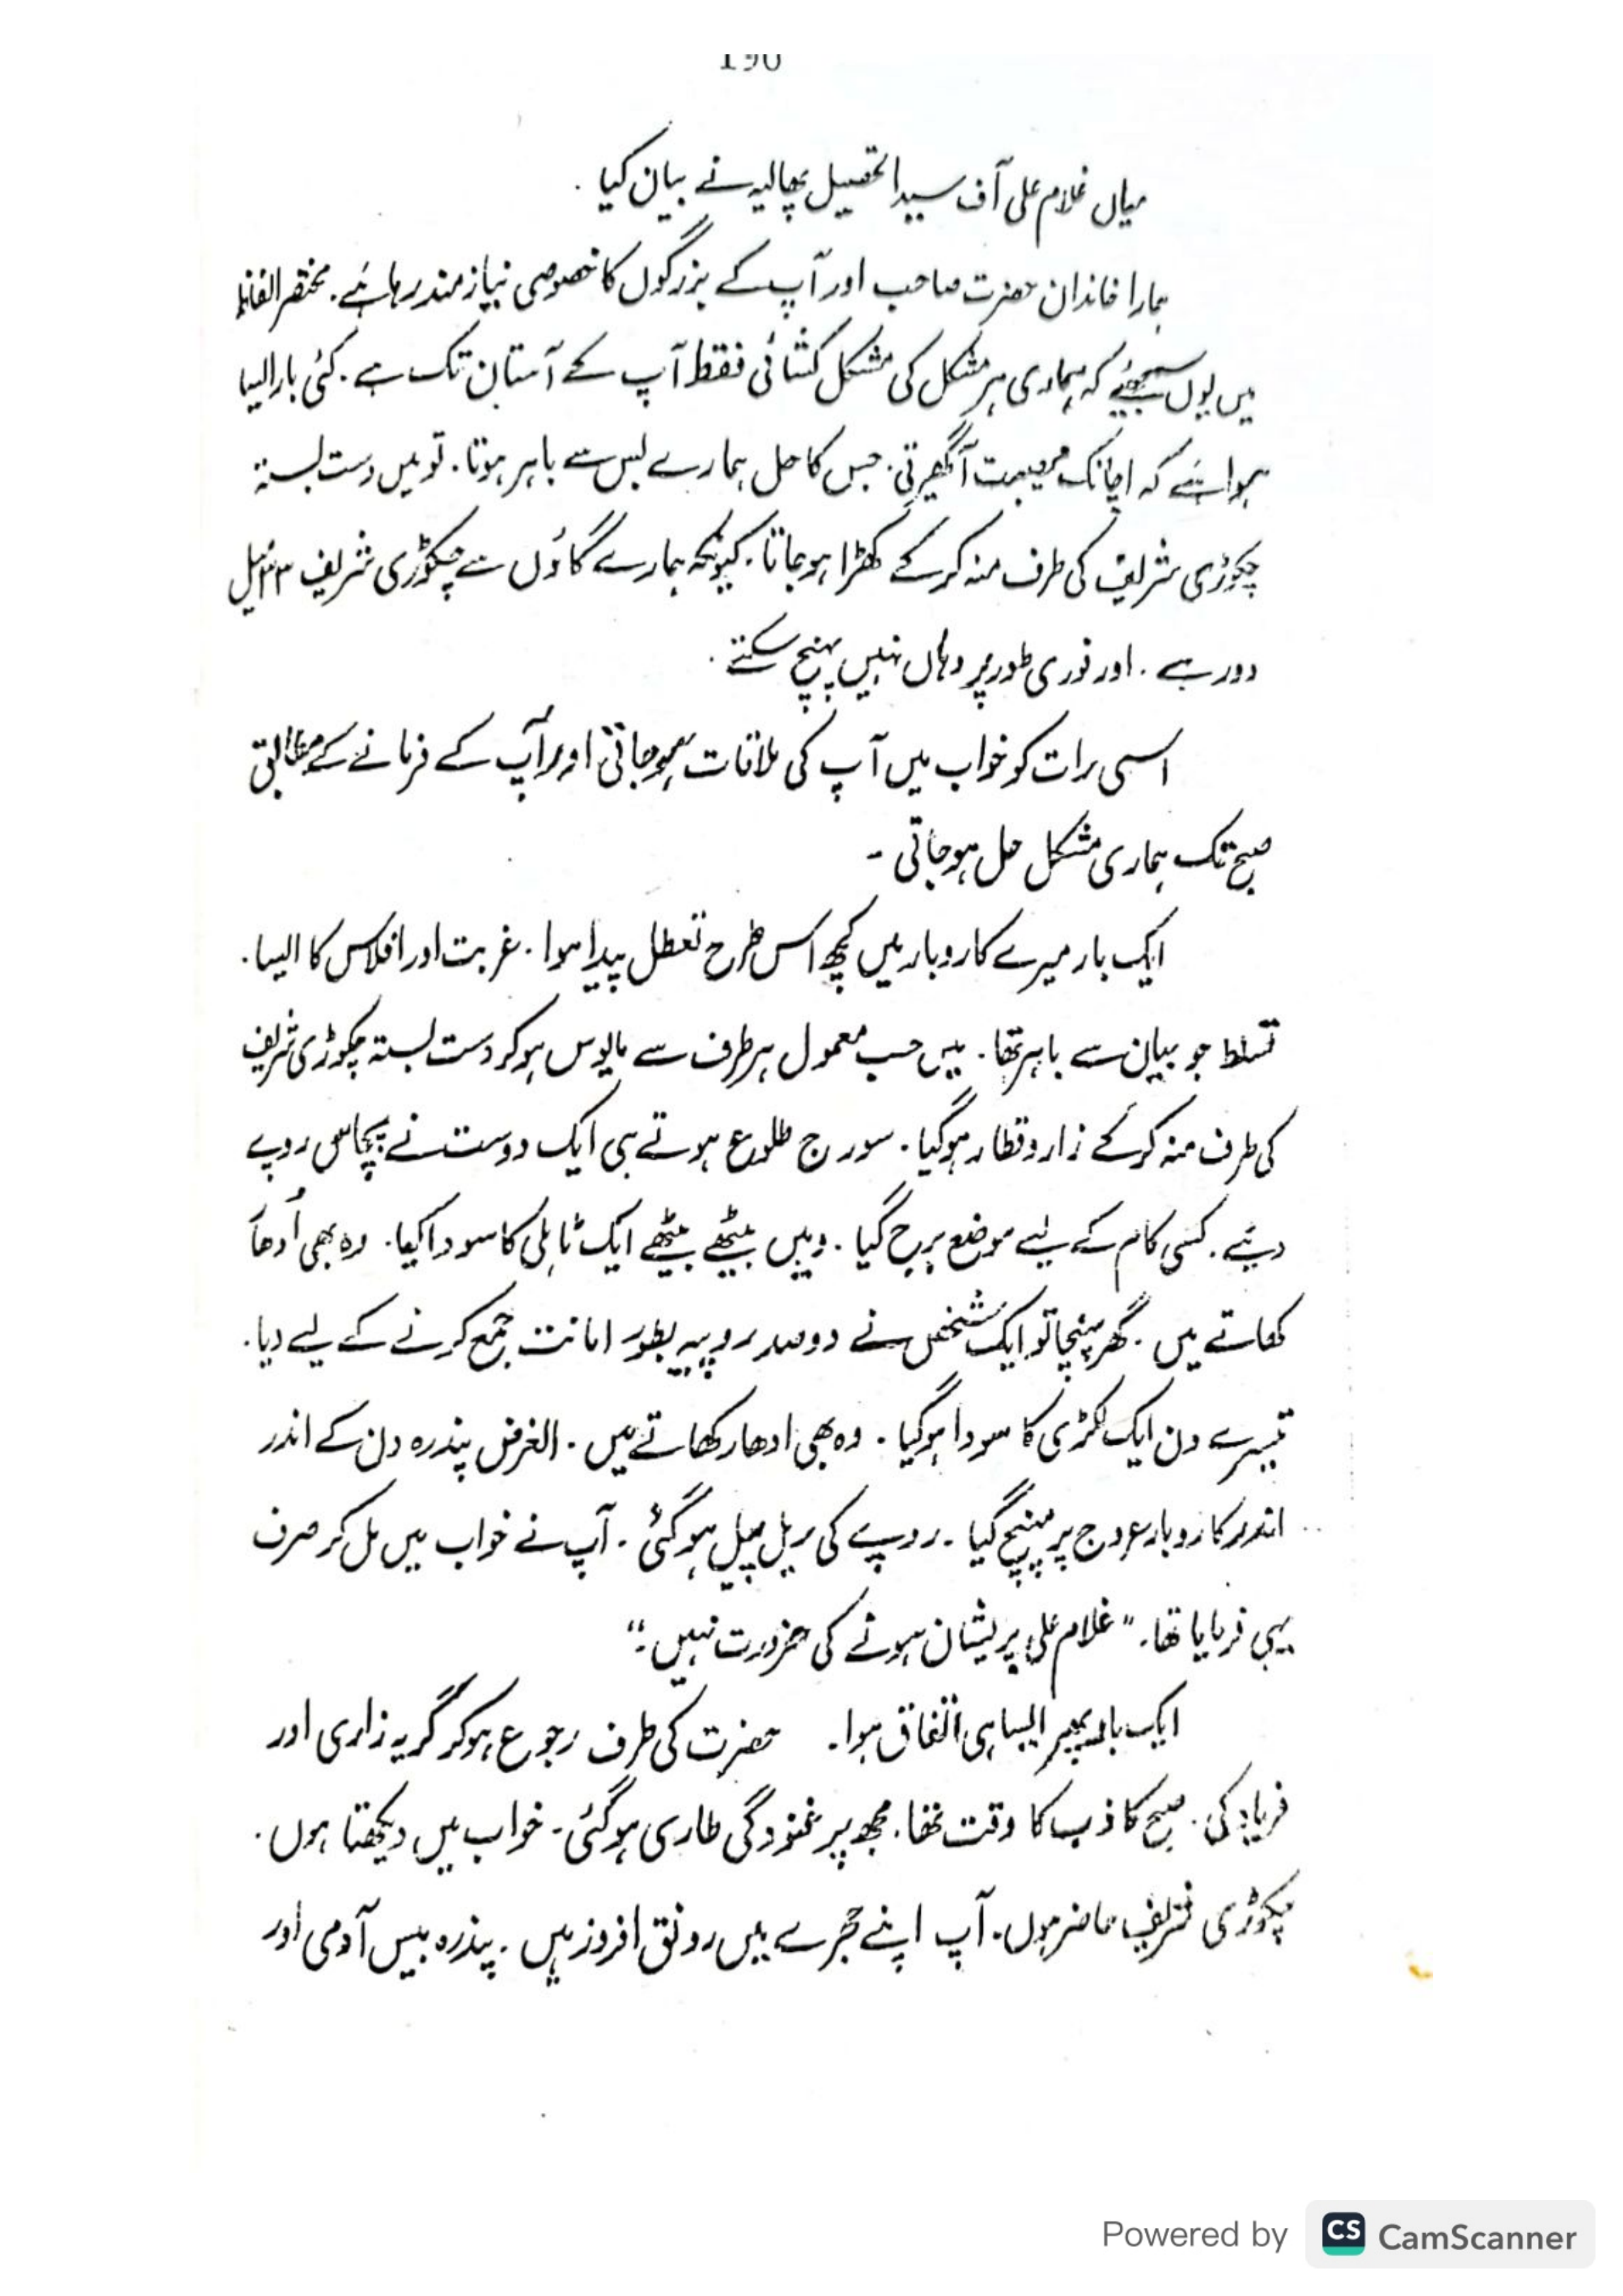 190
میاں غلام علی آف سیدا تحصیل پھالیہ نے بیان کیا ۔
ہمارا خاندان حضرت صاحب اور آپ کے بزرگوں کا خصوصی نیاز مند رہا ہے۔ مختصر الفاظ
میں یوں سمجھئے کہ ہماری ہر مشکل کی مشکل کشائی فقط آپ کے آستان تک ہے۔ کئی بار ایسا
ہوا ہے کہ اچانک مصیبت آ گھیرتی۔ جس کا حل ہمارے بس سے باہر ہوتا۔ تو میں دست بستہ
چکوڑی شریف کی طرف منہ کر کے کھڑا ہو جاتا۔ کیونکہ ہمارے گاؤں سے چکوڑی شریف میل
دور ہے ۔ اور فوری طور پر وہاں نہیں پہنچ سکتے ۔
اسی رات کو خواب میں آپ کی ملاقات ہو جاتی اور آپ کے فرمانے کے مطابق
صبح تک ہماری مشکل حل ہو جاتی ۔
ایک بار میرے کاروبار میں کچھ اس طرح تعطل پیدا ہوا ۔ غربت اور افلاس کا ایسا ۔
تسلط جو بیان سے باہر تھا ۔ میں حسب معمول ہر طرف سے مایوس ہو کر دست بستہ چکوڑی شریف
کی طرف منہ کر کے زار و قطار ہو گیا ۔ سورج طلوع ہوتے ہی ایک دوست نے پچاس روپے
دیئے ۔ کسی کام کے لئے موضع برج گیا ۔ وہیں بیٹھے بیٹھے ایک ٹاہلی کا سودا کیا ۔ وہ بھی اُدھار
کھاتے میں ۔ گھر پہنچا تو ایک شخص نے دو صد روپیہ بطور امانت جمع کرنے کے لیے دیا ۔
تیسرے دن ایک لکڑی کا سودا ہو گیا ۔ وہ بھی ادھار کھاتے میں ۔ الغرض پندرہ دن کے اندر
اندر کاروبار عروج پر پہنچ گیا ۔ روپے کی ریل پیل ہو گئی ۔ آپ نے خواب میں مل کر صرف
یہی فرمایا تھا ۔ " غلام علی پریشان ہونے کی ضرورت نہیں ۔"
ایک بار پھر ایسا ہی اتفاق ہوا ۔ حضرت کی طرف رجوع ہو کر گریہ زاری اور
فریاد کی ۔ صبح کاذب کا وقت تھا ۔ مجھ پر غنودگی طاری ہو گئی ۔ خواب میں دیکھتا ہوں ۔
چکوڑی شریف حاضر ہوں ۔ آپ اپنے حجرے میں رونق افروز ہیں ۔ پندرہ بیس آدمی اور
Powered by CS CamScanner